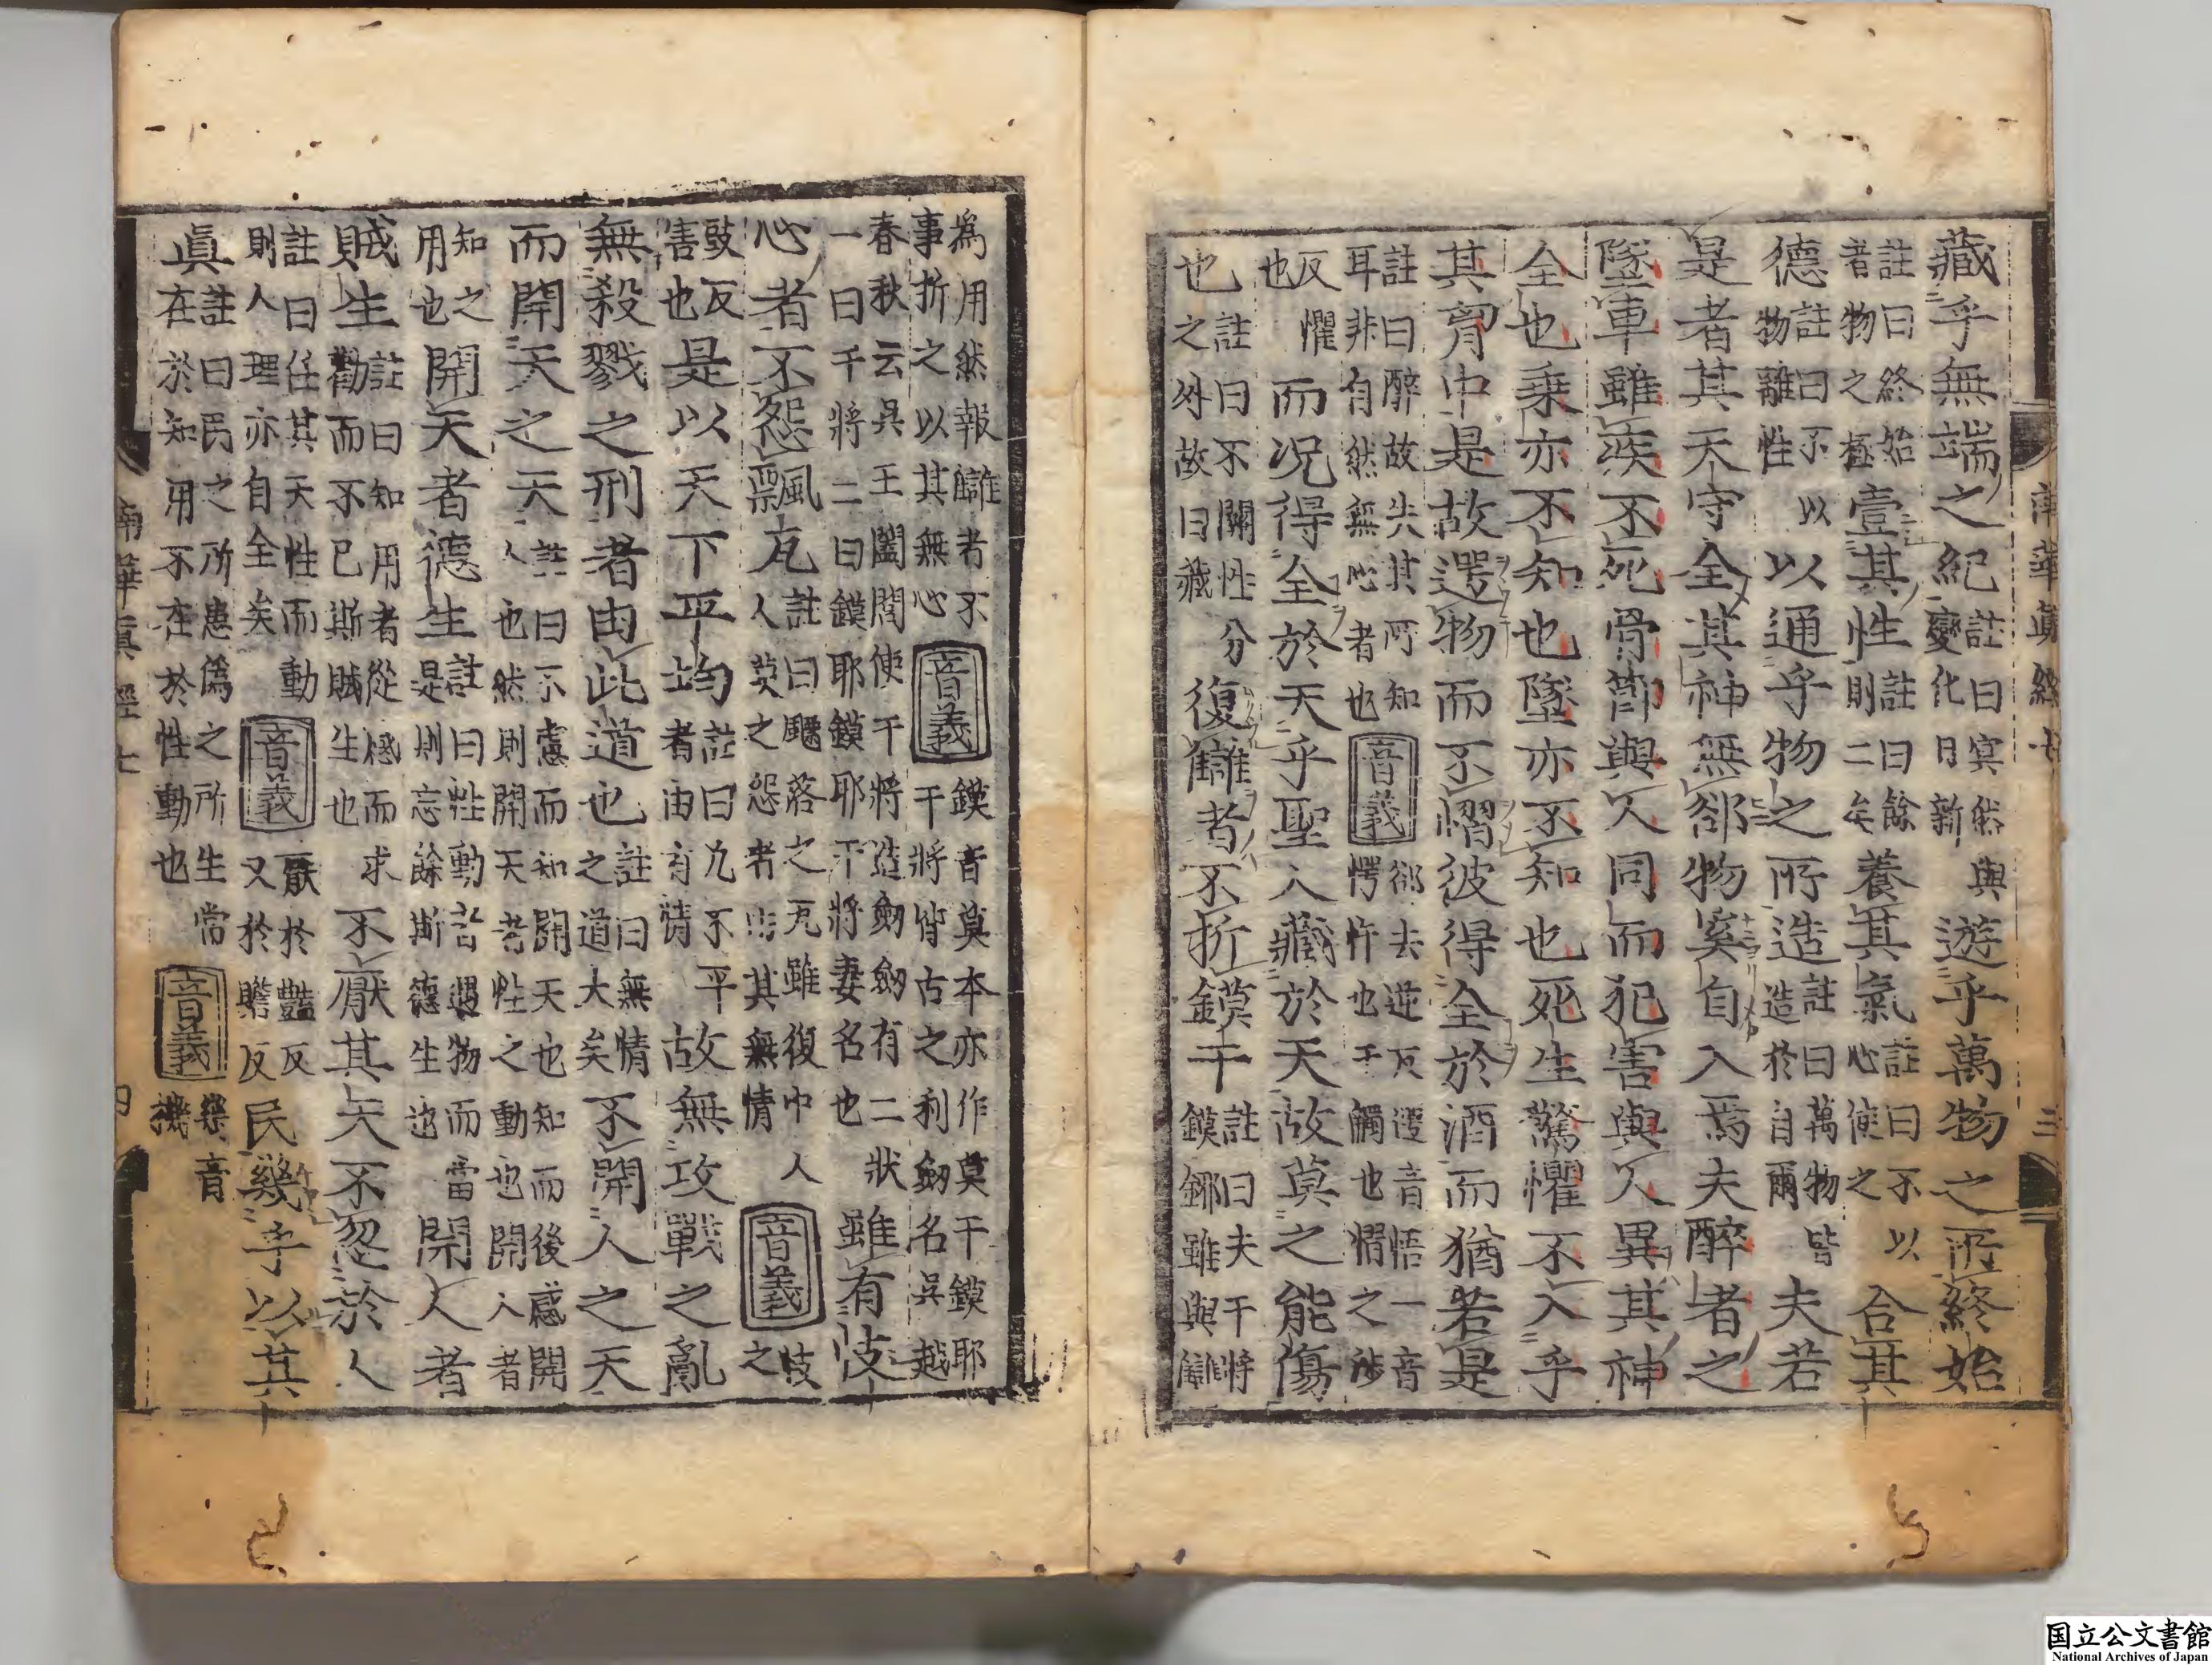 南華眞經七
三
藏乎無端之紀註曰冥然與變化日新遊乎萬物之所終始
註曰終始者物之極壹其性註曰餘則二矣養其氣註曰不以心使之合其
德註曰不以物離性以通乎物之所造註曰萬物皆造於自爾夫若
是者其天守全其神無郤物奚自入焉夫醉者之
墜車雖疾不死骨節與人同而犯害與人異其神
全也乗亦不知也墜亦不知也死生驚懼不入乎
其胷中是故遻物而不慴彼得全於酒而猶若是
註曰醉故失其所知耳非自然無心者也音義郤去逆反遻音悟一音愕忤也干觸也慴之涉
反懼也而况得全於天乎聖人藏於天故莫之能傷
也註曰不闚性分之外故曰藏復讎者不折鏌干註曰夫干將鏌鋣雖與讎
爲用然報讎者不事折之以其無心音義鏌音莫本亦作莫干鏌耶干將皆古之利劒名吳越
春秋云吳王闔閭使干將造劒劒有二狀一曰干將二曰鏌耶鏌耶干將妻名也雖有忮
心者不怨飄瓦註曰飄落之瓦雖復中人人莫之怨者由其無情音義忮之
豉反害也是以天下平均註曰凡不平者由有情故無攻戰之亂
無殺戮之刑者由此道也註曰無情之道大矣不開人之天
而開天之天註曰不慮而知開天也知而後感開人也然則開天者性之動也開人者
知之用也開天者德生註曰性動者遇物而當是則忘餘斯德生也開人者
賊生註曰知用者從感而求勸而不已斯賊生也不厭其天不忽於人
註曰任其天性而動則人理亦自全矣音義厭於豔反又於瞻反民幾乎以其
眞註曰民之所患僞之所生常在於知用不在於性動也音義幾音機
南華眞經七
四
国立公文書館
National Archives of Japan